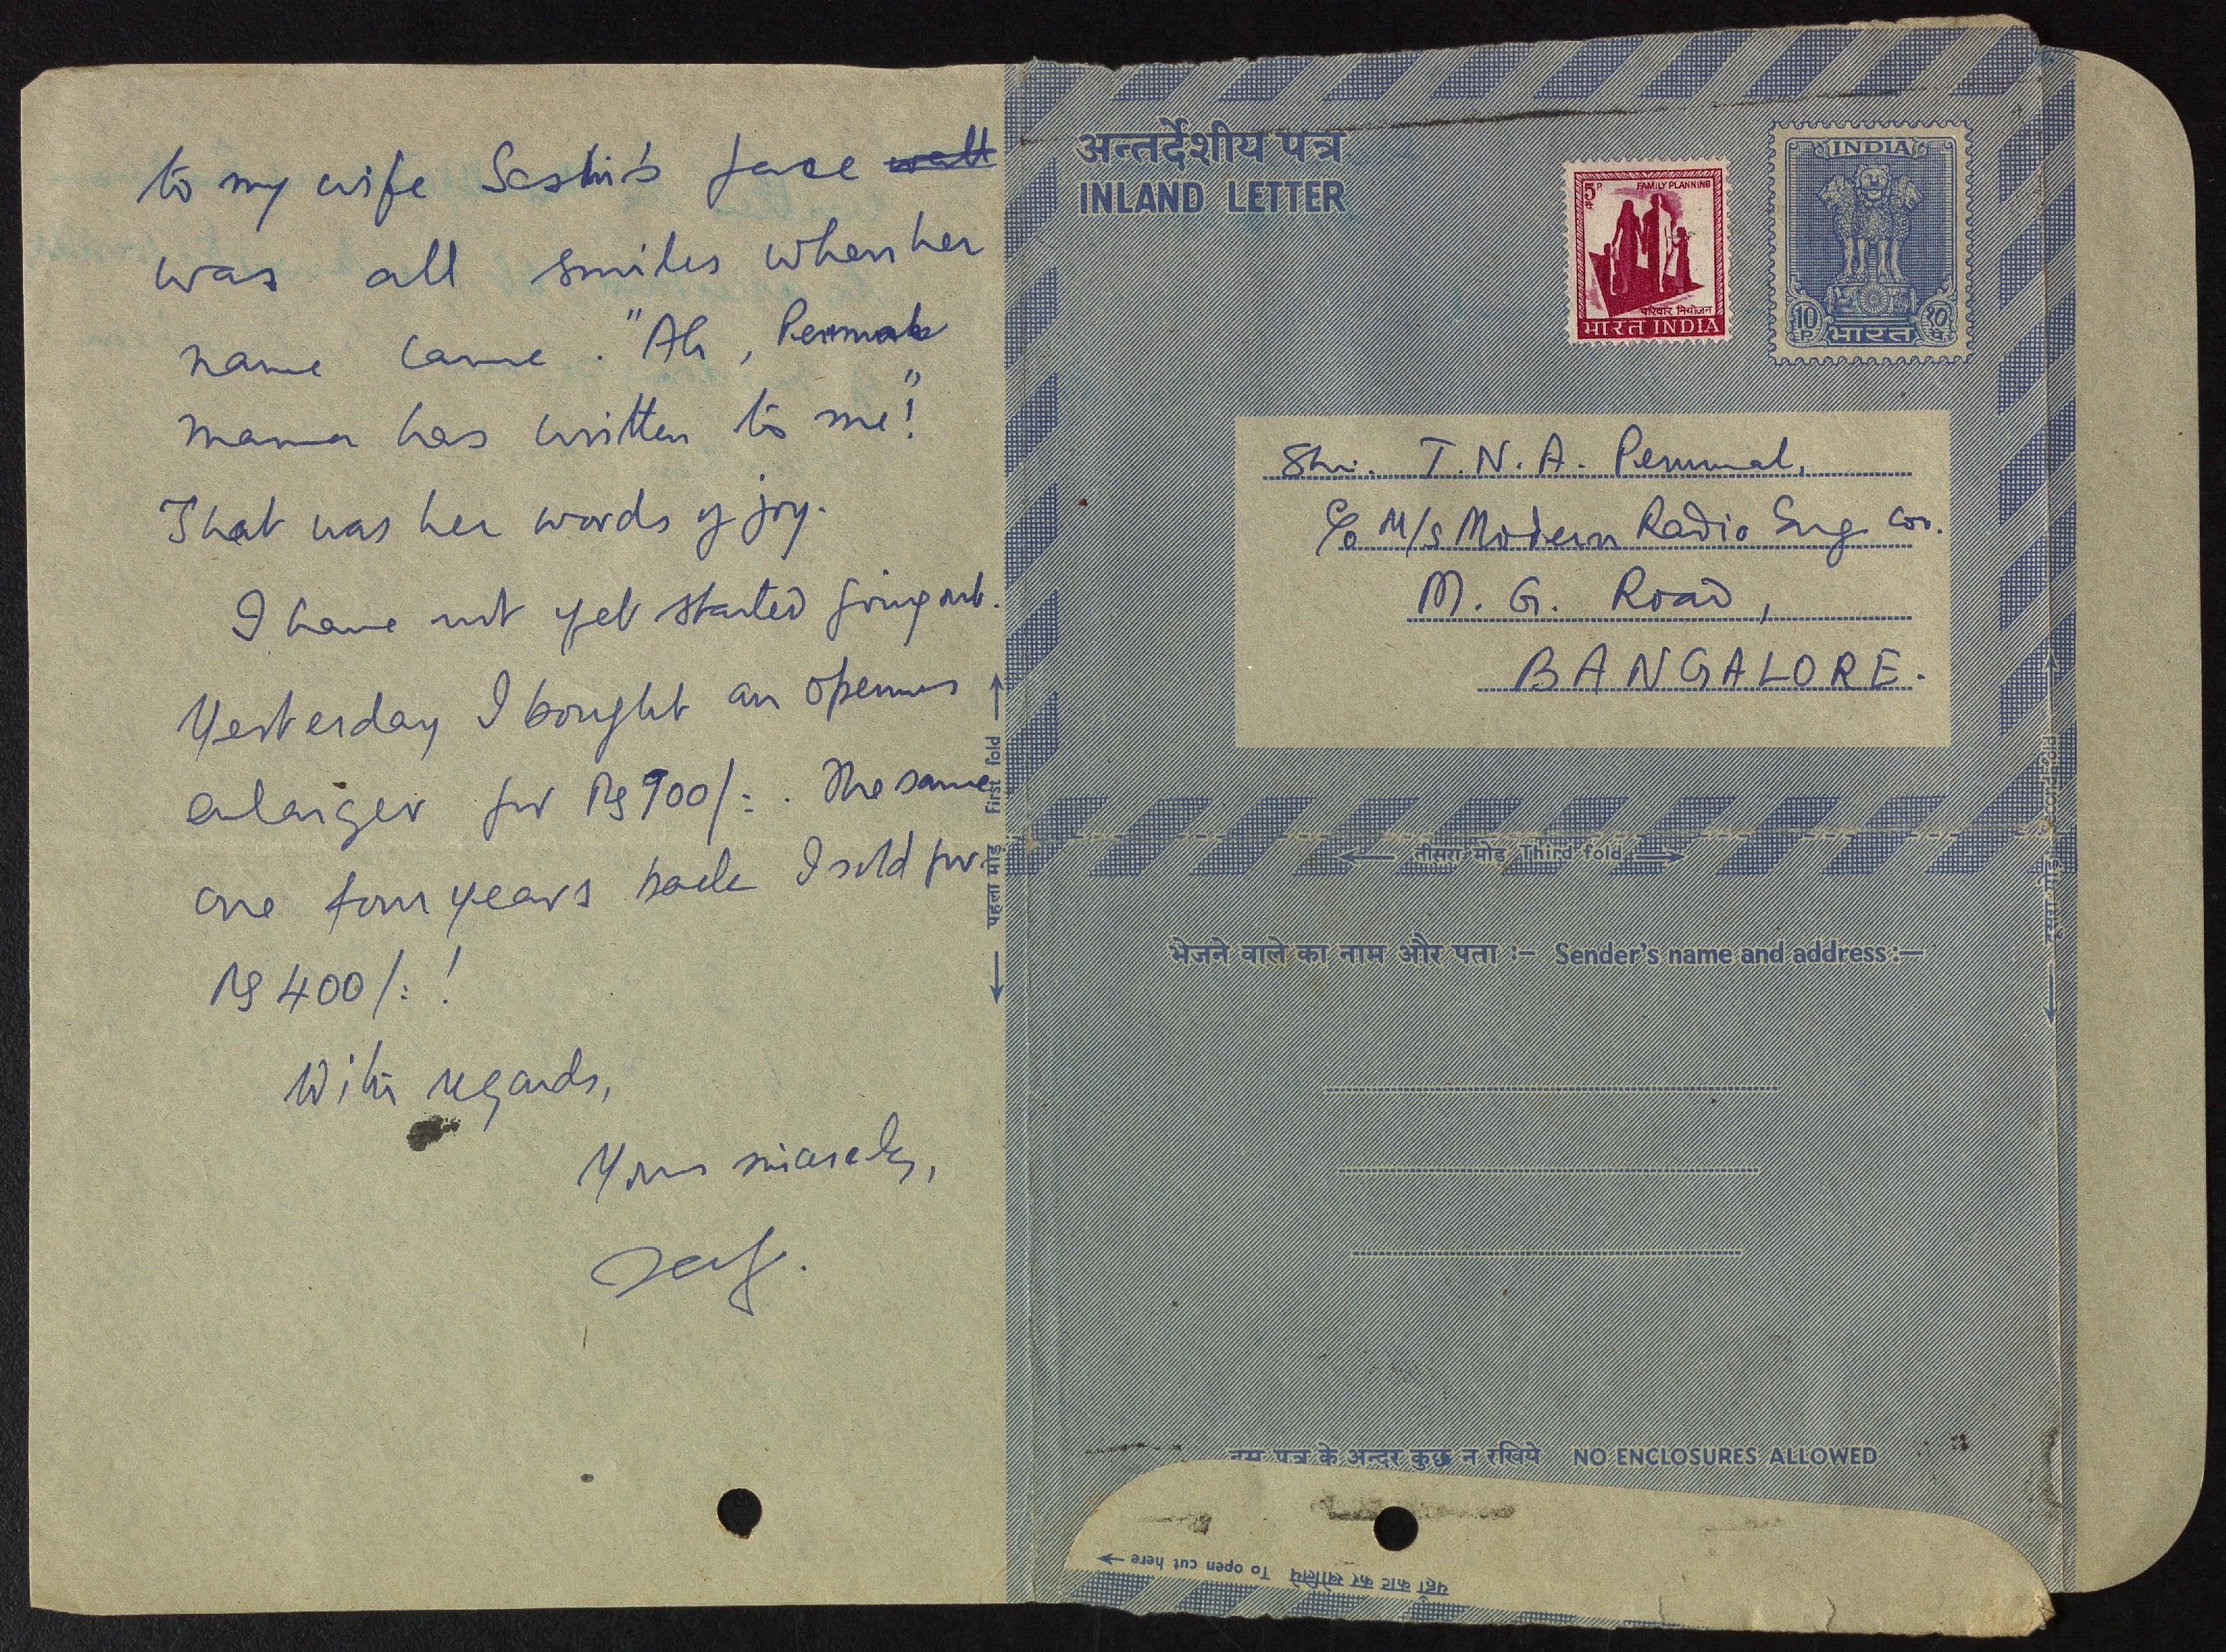 to my wife Sashi's face watt
was all smiles when her
name came. "Ah, Perumal
mama has written to me!"
That was her words of joy.
I have not yet started going out.
Yesterday I bought an openus
enlarger for Rs 900/=. The same
one four years back I sold for
Rs 400/= !
With regards,
Yours sincerely,
अन्तर्देशीय पत्र
INLAND LETTER
5 P
पै.
FAMILY PLANNING
परिवार नियोजन
भारत INDIA
INDIA
10 P
भारत
१० पै.
Shri. T.N.A. Perumal,
C/o M/s Modern Radio Eng Cor.
M. G. Road,
BANGALORE.
पहला मोड़ First fold
दूसरा मोड़ Second fold
तीसरा मोड़ Third fold
भेजने वाले का नाम और पता :- Sender's name and address:-
इस पत्र के अन्दर कुछ न रखिये NO ENCLOSURES ALLOWED
यहाँ काट कर खोलिये To open cut here